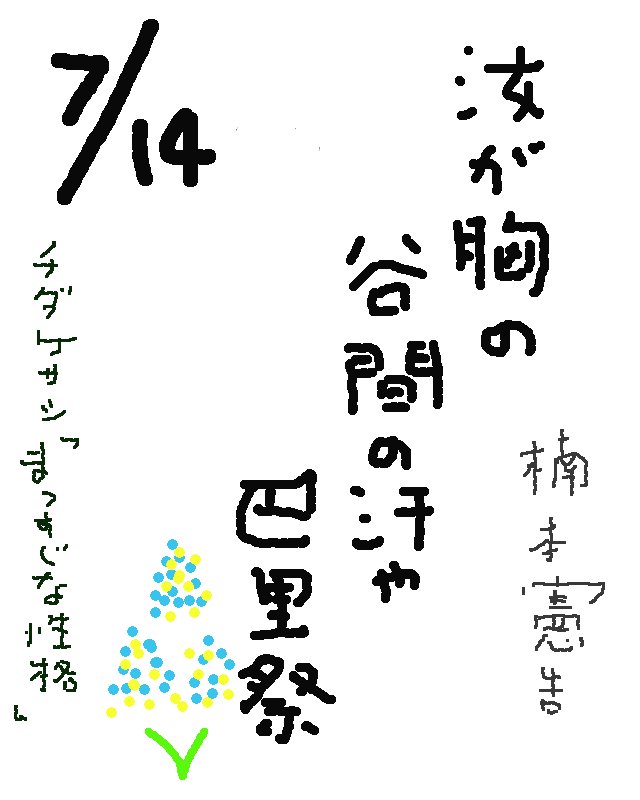 7/14
汝が胸の
谷間の汗や
巴里祭
楠本憲吉
チダケサシ「まっすぐな性格」